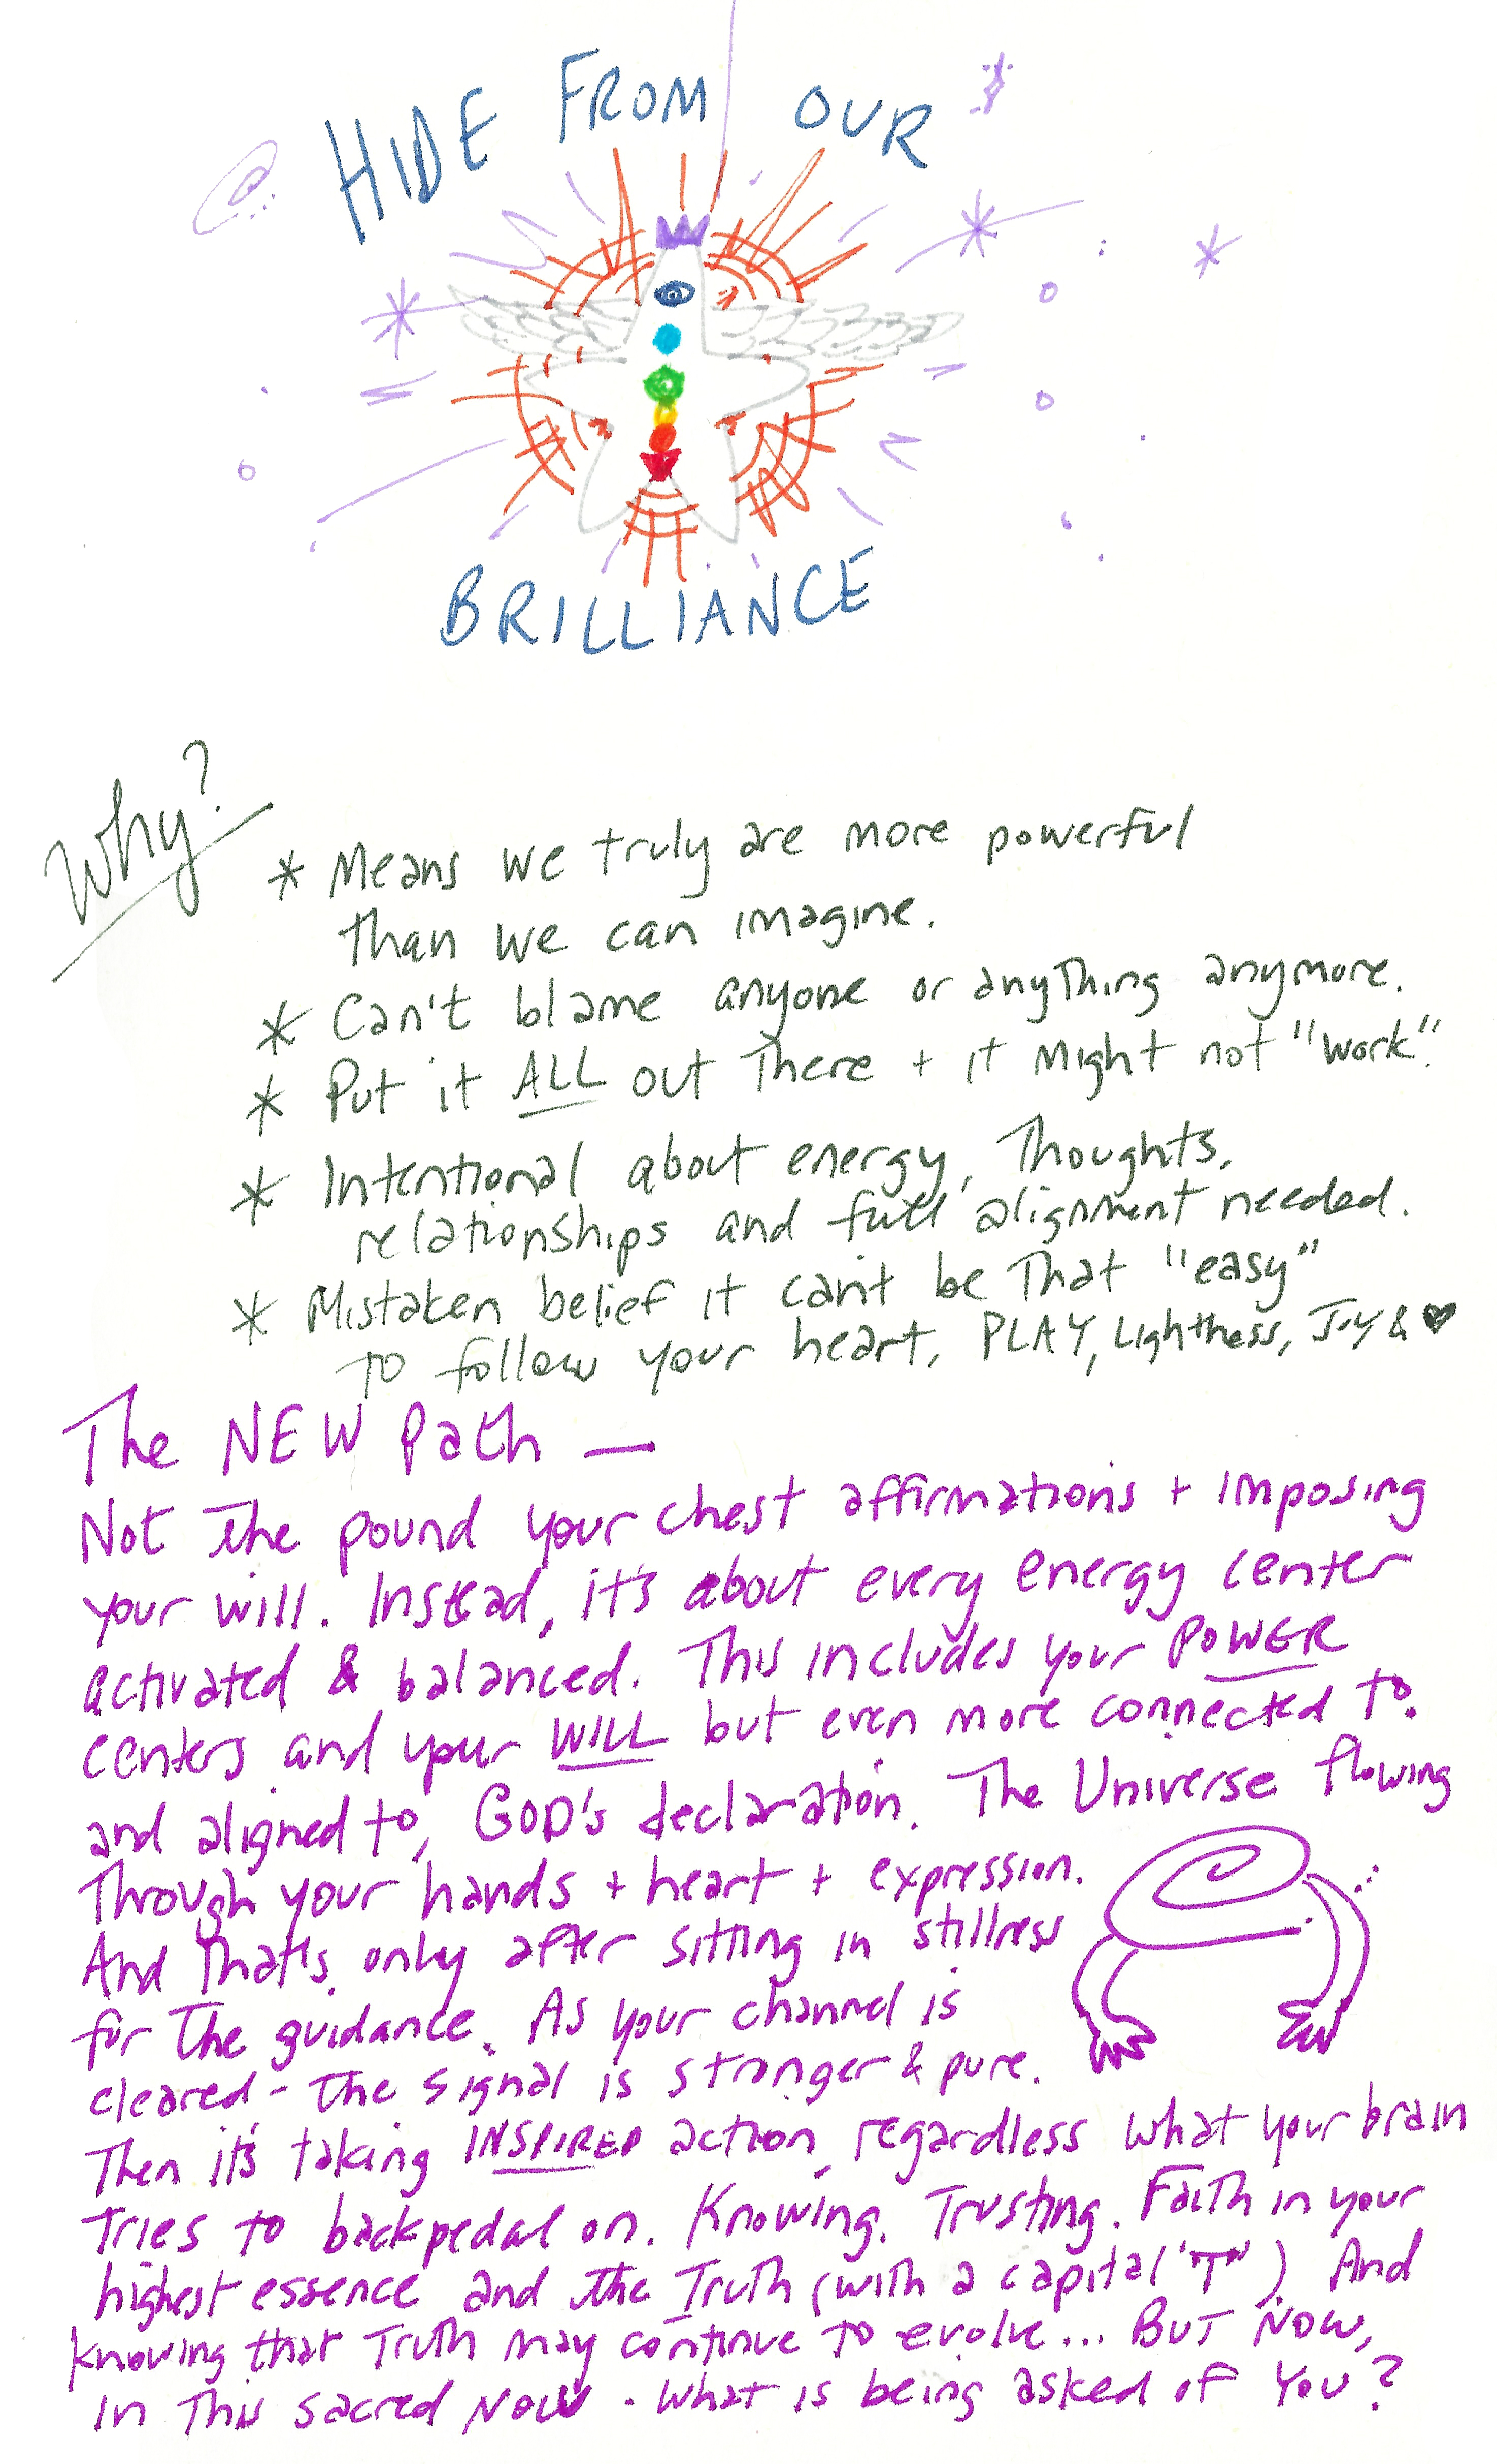 HIDE FROM OUR
BRILLIANCE
Why?
* Means we truly are more powerful
than we can imagine.
* Can't blame anyone or anything anymore.
* Put it ALL out There + it Might not "work".
* Intentional about energy, Thoughts,
relationships and full alignment needed.
* Mistaken belief it can't be That "easy"
TO follow your heart, PLAY, Lightness, Joy & ♥
The NEW Path —
Not the pound your chest affirmations + imposing
your will. Instead, it's about every energy center
activated & balanced. This includes your POWER
centers and your WILL but even more connected to,
and aligned to, GOD's declaration. The Universe flowing
Through your hands + heart + expression.
And That's only after sitting in stillness
for The guidance. As your channel is
cleared - The signal is stronger & pure.
Then it's taking INSPIRED action, regardless what your brain
Tries to backpedal on. Knowing. Trusting. Faith in your
highest essence and the Truth (with a capital "T") And
knowing that Truth may continue to evolve... BUT NOW,
In This sacred NOW - What is being asked of You?